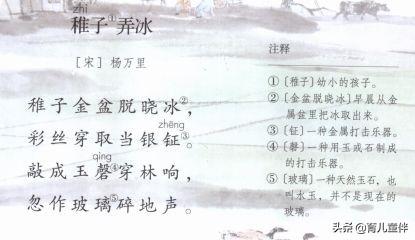 zhì
稚子①弄冰
［宋］杨万里
稚子金盆脱晓冰②，
zhēng
彩丝穿取当银钲③。
qìng
敲成玉磬④穿林响，
忽作玻璃⑤碎地声。
注释
①〔稚子〕幼小的孩子。
②〔金盆脱晓冰〕早晨从金
属盆里把冰取出来。
③〔钲〕一种金属打击乐器。
④〔磬〕一种用玉或石制成
的打击乐器。
⑤〔玻璃〕一种天然玉石，也
叫水玉，并不是现在的
玻璃。
头条 @育儿童伴